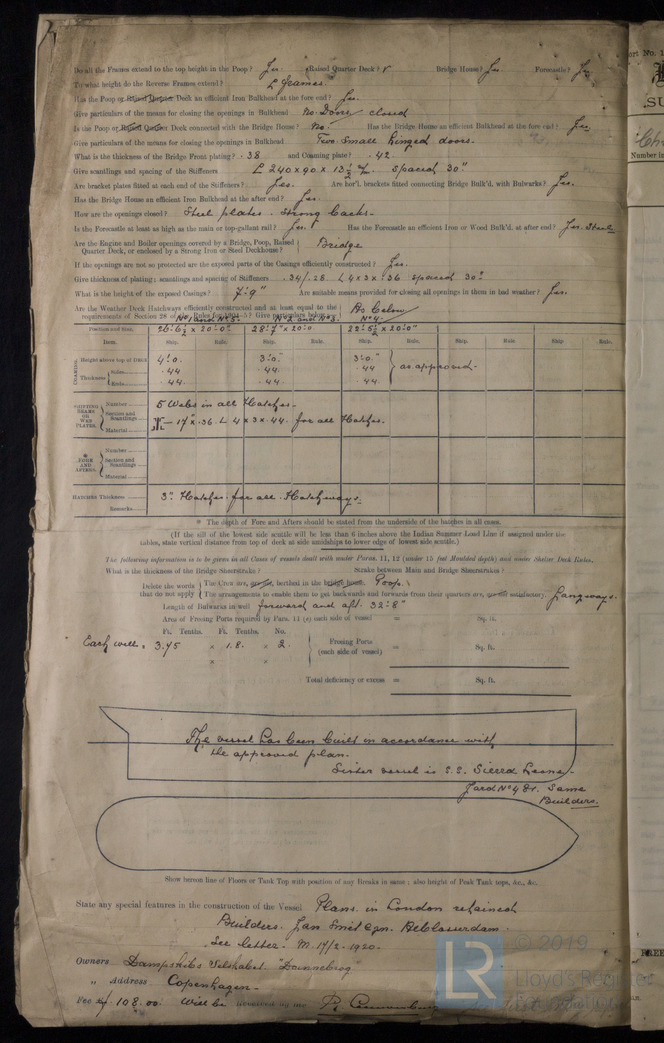 Do all the Frames extend to the top height in the Poop? Yes. Raised Quarter Deck? Bridge House? Yes. Forecastle? Yes.
To what height do the Reverse Frames extend? L frames
Has the Poop or Raised Quarter Deck an efficient Iron Bulkhead at the fore end? Yes.
Give particulars of the means for closing the openings in Bulkhead No Doors closed
Is the Poop or Raised Quarter Deck connected with the Bridge House? No. Has the Bridge House an efficient Bulkhead at the fore end? Yes
Give particulars of the means for closing the openings in Bulkhead Two small hinged doors.
What is the thickness of the Bridge Front plating? .38 and Coaming plate? .42
Give scantlings and spacing of the Stiffeners L 240 x 90 x 13½ spaced 30"
Are bracket plates fitted at each end of the Stiffeners? Yes. Are hor'l. brackets fitted connecting Bridge Bulk'd. with Bulwarks? Yes.
Has the Bridge House an efficient Iron Bulkhead at the after end? Yes.
How are the openings closed? Steel plates. Strong backs.
Is the Forecastle at least as high as the main or top-gallant rail? Yes. Has the Forecastle an efficient Iron or Wood Bulk'd. at after end? Yes. Steel
Are the Engine and Boiler openings covered by a Bridge, Poop, Raised Bridge
Quarter Deck, or enclosed by a Strong Iron or Steel Deckhouse?
If the openings are not so protected are the exposed parts of the Casings efficiently constructed? Yes.
Give thickness of plating; scantlings and spacing of Stiffeners .34/.26 L 4x3x.36 spaced 30"
What is the height of the exposed Casings? 7'.9" Are suitable means provided for closing all openings in them in bad weather? Yes.
Are the Weather Deck Hatchways efficiently constructed and at least equal to the As below
requirements of Section 28 of the Rules for Give particulars below:
No 1 and No 5. No 2 and No 3. No 4.
Position and Size. 26'.6½" x 20'.0" 28'.7" x 20'.0 22'.5½" x 20'.0"
Item. Ship. Rule. Ship. Rule. Ship. Rule. Ship. Rule. Ship. Rule. Ship. Rule.
COAMING Height above top of Deck 4'.0. 3'.0" 3'.0"
Thickness Sides .44 .44 .44 as approved
Ends .44. .44. .44
SHIFTING BEAMS OR WEB PLATES. Number 5 Webs in all Hatches.
Section and Scantlings 17" x .36 L 4 x 3 x .44. for all Hatches.
Material
* FORE AND AFTERS. Number
Section and Scantlings
Material
HATCHES Thickness 3" Hatches for all Hatchways.
Remarks
* The depth of Fore and Afters should be stated from the underside of the hatches in all cases.
(If the sill of the lowest side scuttle will be less than 6 inches above the Indian Summer Load Line if assigned under the
tables, state vertical distance from top of deck at side amidships to lower edge of lowest side scuttle.)
The following information is to be given in all Cases of vessels dealt with under Paras. 11, 12 (under 15 feet Moulded depth) and some Shelter Deck Rules.
What is the thickness of the Bridge Sheerstrake? Strake between Main and Bridge Sheerstrakes?
Delete the words The Crew are, are not, berthed in the bridge house. Poop.
that do not apply The arrangements to enable them to get backwards and forwards from their quarters are, are not satisfactory. Gangways.
Length of Bulwarks in well forward and aft. 32'.8"
Area of Freeing Ports required by Para. 11 (e) each side of vessel = Sq. ft.
Ft. Tenths. Ft. Tenths. No.
Each well = 3.75 x 1.8. x 2. Freeing Ports = Sq. ft.
x x (each side of vessel)
Total deficiency or excess = Sq. ft.
The vessel has been built in accordance with
the approved plan.
Sister vessel is S.S. Sierra Leone.
Yard No 481. Same
Builders.
Show hereon line of Floors or Tank Top with position of any Breaks in same; also height of Peak Tank tops, &c., &c.
State any special features in the construction of the Vessel Plans in London retained
Builders. Jan Smit Czn. Alblasserdam.
See letter. M. 17/2-1920.
Owners Dampskibs Selskabet "Dannebrog"
" Address Copenhagen.
Fee 108.00: Will be received by me
LR © 2019
Lloyd's Register